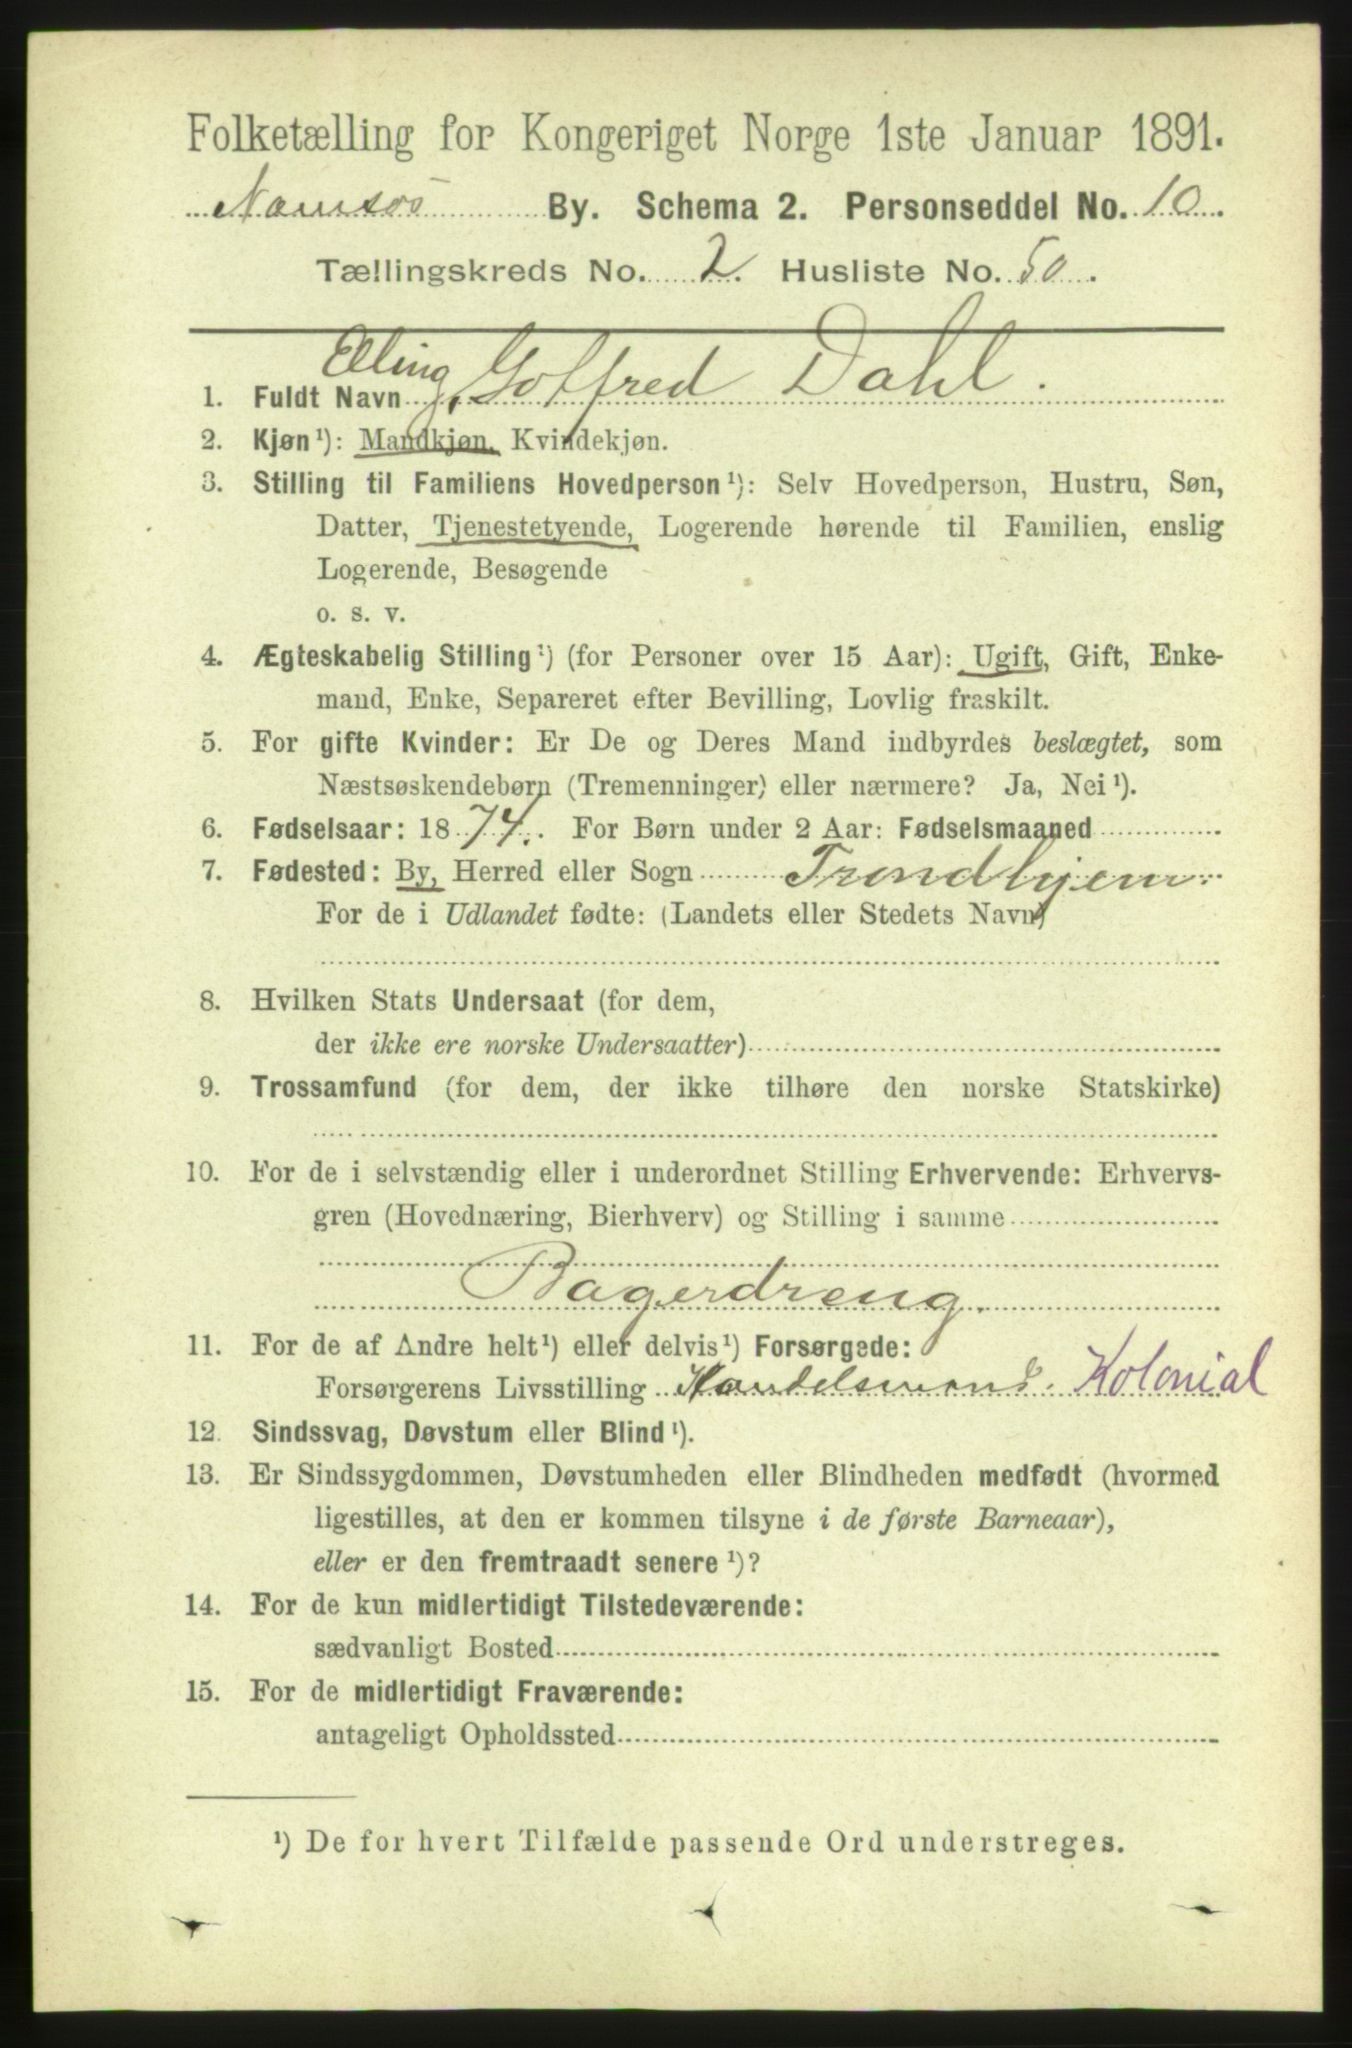 Folketælling for Kongeriget Norge 1ste Januar 1891.
Namsos By. Schema 2. Personseddel No. 10.
Tællingskreds No. 2. Husliste No. 50.
Elling
1. Fuldt Navn Gotfred Dahl.
2. Kjøn¹): Mandkjøn, Kvindekjøn.
3. Stilling til Familiens Hovedperson¹): Selv Hovedperson, Hustru, Søn,
Datter, Tjenestetyende, Logerende hørende til Familien, enslig
Logerende, Besøgende
o. s. v.
4. Ægteskabelig Stilling¹) (for Personer over 15 Aar): Ugift, Gift, Enke-
mand, Enke, Separeret efter Bevilling, Lovlig fraskilt.
5. For gifte Kvinder: Er De og Deres Mand indbyrdes beslægtet, som
Næstsøskendebørn (Tremenninger) eller nærmere? Ja, Nei¹).
6. Fødselsaar: 1874. For Børn under 2 Aar: Fødselsmaaned
7. Fødested: By, Herred eller Sogn Trondhjem.
For de i Udlandet fødte: (Landets eller Stedets Navn)
8. Hvilken Stats Undersaat (for dem,
der ikke ere norske Undersaatter)
9. Trossamfund (for dem, der ikke tilhøre den norske Statskirke)
10. For de i selvstændig eller i underordnet Stilling Erhvervende: Erhvervs-
gren (Hovednæring, Bierhverv) og Stilling i samme
Bagerdreng.
11. For de af Andre helt¹) eller delvis¹) Forsørgede:
Forsørgerens Livsstilling Handelsmand. Kolonial
12. Sindssvag, Døvstum eller Blind¹).
13. Er Sindssygdommen, Døvstumheden eller Blindheden medfødt (hvormed
ligestilles, at den er kommen tilsyne i de første Barneaar),
eller er den fremtraadt senere¹)?
14. For de kun midlertidigt Tilstedeværende:
sædvanligt Bosted
15. For de midlertidigt Fraværende:
antageligt Opholdssted
¹) De for hvert Tilfælde passende Ord understreges.